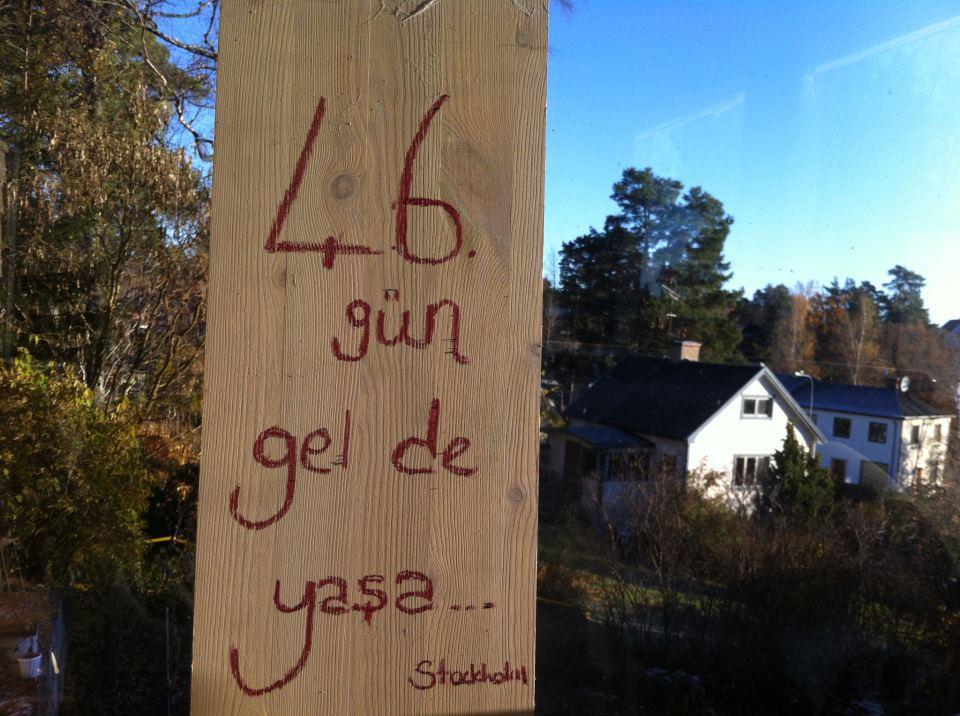 46.
gün
gel de
yaşa...
Stockholm